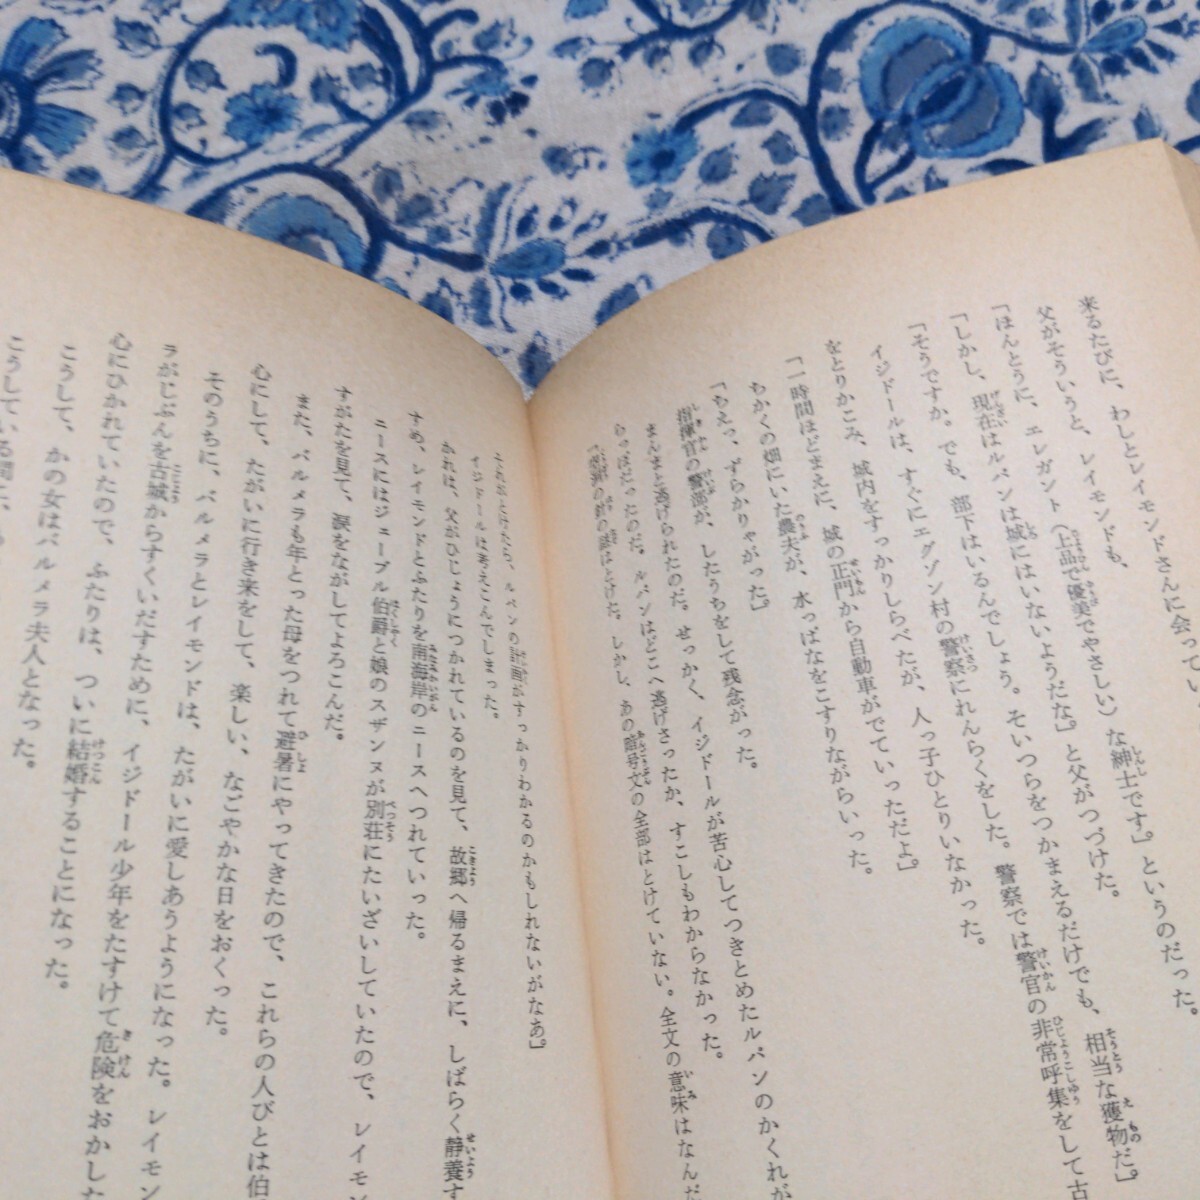 来るたびに、わしとレイモンドさんに会ってい
父がそういうと、レイモンドも、
「ほんとうに、エレガント（上品で優美でやさしい）な紳士です。」というのだった。
「しかし、現在はルパンは城にはいないようだな。」と父がつづけた。
「そうですか。でも、部下はいるんでしょう。そいつらをつかまえるだけでも、相当な獲物だ。」
イジドールは、すぐにエグゾン村の警察にれんらくをした。警察では警官の非常呼集をして古
をとりかこみ、城内をすっかりしらべたが、人っ子ひとりいなかった。
「一時間ほどまえに、城の正門から自動車がでていっただよ。」
ちかくの畑にいた農夫が、水っぱなをこすりながらいった。
「ちえっ、ずらかりゃがった。」
指揮官の警部が、したうちをして残念がった。
まんまと逃げられたのだ。せっかく、イジドールが苦心してつきとめたルパンのかくれが
らっぽだったのだ。ルパンはどこへ逃げさったか、すこしもわからなかった。
の謎はとけた。しかし、あの暗号文の全部はとけていない。全文の意味はなんだ
それがとけたら、ルパンの計画がすっかりわかるのかもしれないがなあ。」
イジドールは考えこんでしまった。
かれは、父がひじょうにつかれているのを見て、故郷へ帰るまえに、しばらく静養す
すめ、レイモンドとふたりを南海岸のニースへつれていった。
ニースにはジェーブル伯爵と娘のスザンヌが別荘にたいざいしていたので、レイモン
すがたを見て、涙をながしてよろこんだ。
また、バルメラも年とった母をつれて避暑にやってきたので、これらの人びとは伯
心にして、たがいに行き来をして、楽しい、なごやかな日をおくった。
そのうちに、バルメラとレイモンドは、たがいに愛しあうようになった。レイモン
ラがじぶんを古城からすくいだすために、イジドール少年をたすけて危険をおかした
心にひかれていたので、ふたりは、ついに結婚することになった。
こうして、かの女はバルメラ夫人となった。
こうしている間に、